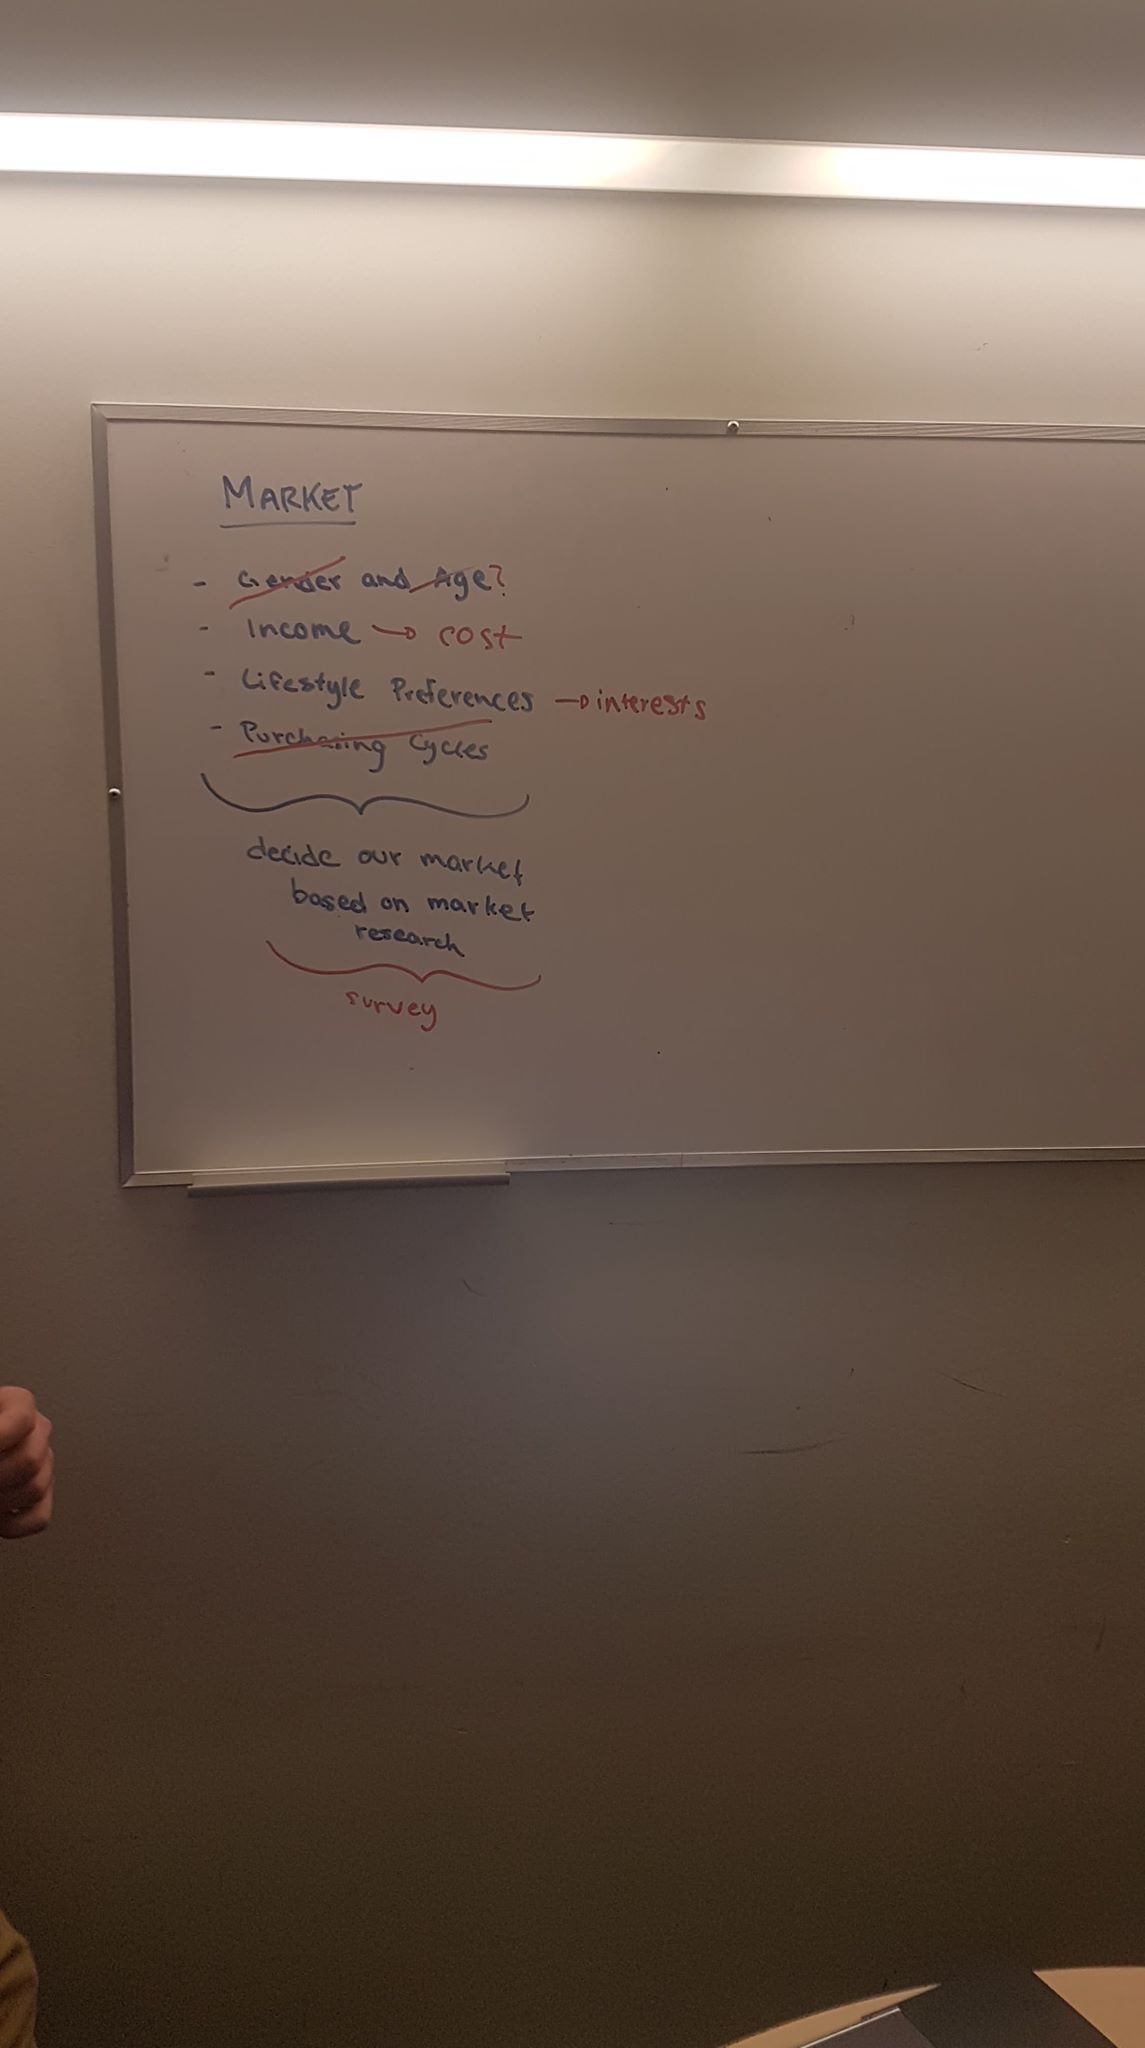 MARKET
- Gender and Age?
- Income → cost
- Lifestyle Preferences → interests
- Purchasing Cycles
decide our market
based on market
research
survey